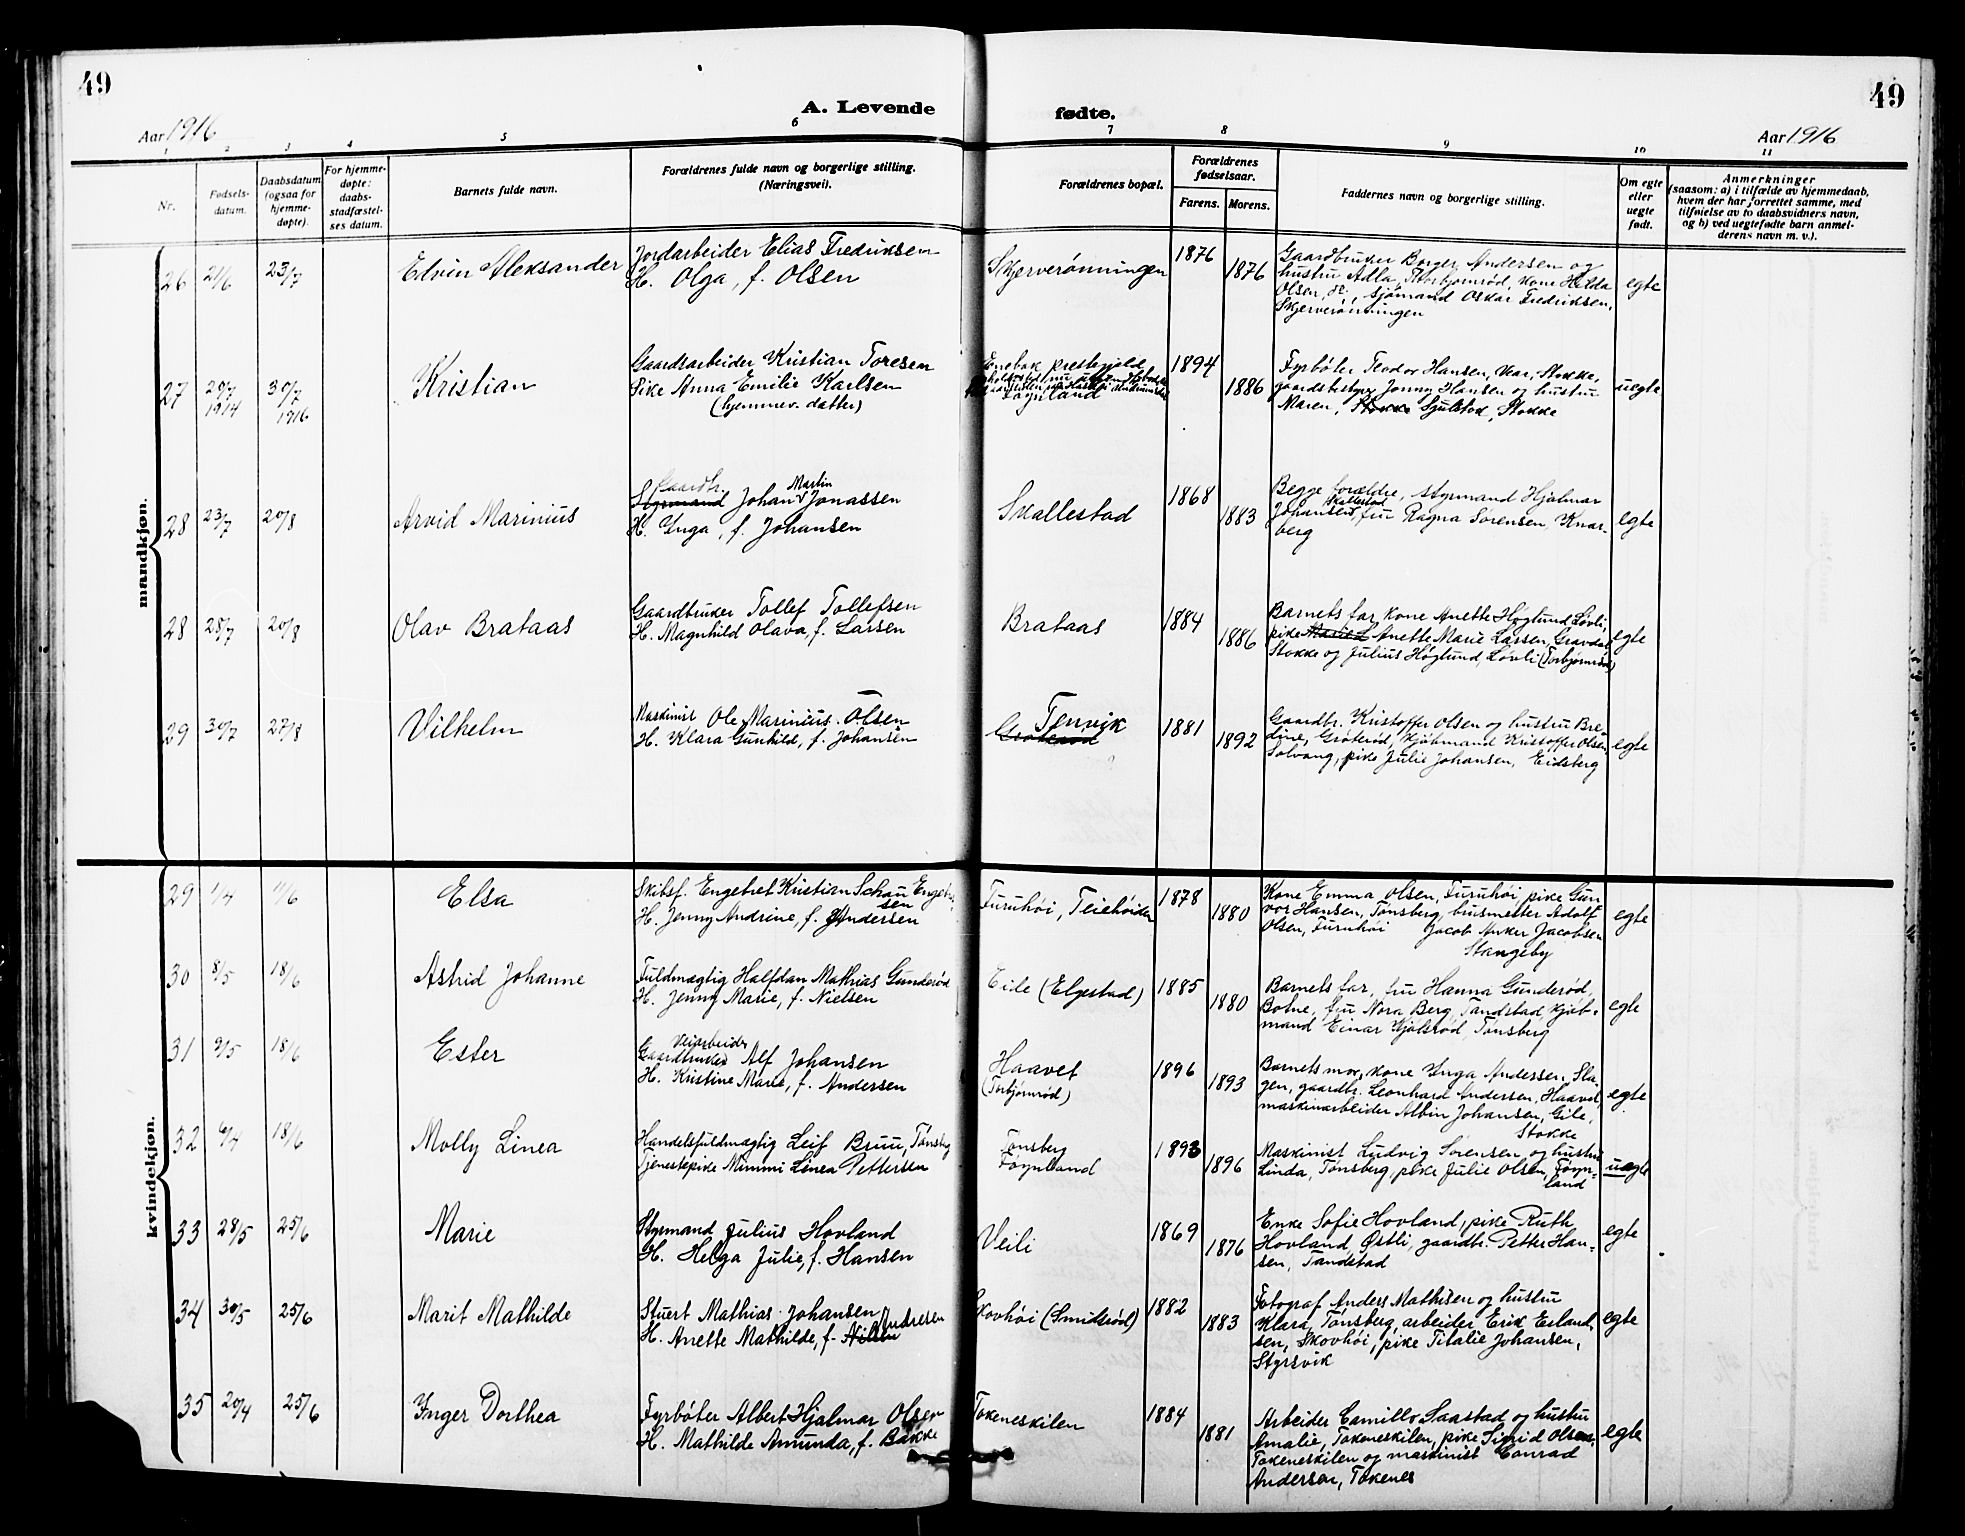 49
A. Levende fødte.
49
Aar 1916
Aar 1916
1 2 3 4 5 6 7 8 9 10 11
Nr.
Fødsels-
datum.
Daabsdatum
(ogsaa for
hjemme-
døpte).
For hjemme-
døpte:
daabs-
stadfæstel-
ses datum.
Barnets fulde navn.
Forældrenes fulde navn og borgerlige stilling.
(Næringsvei).
Forældrenes bopæl.
Forældrenes
fødselsaar.
Farens. Morens.
Faddernes navn og borgerlige stilling.
Om egte
eller
uegte
født.
Anmerkninger
(saasom: a) i tilfælde av hjemmedaab,
hvem der har forrettet samme, med
tilføielse av to daabsvidners navn,
og b) ved uegtefødte barn anmel-
derens navn m. v.).
mandkjøn.
26 21/6 23/7 Edvin Aleksander
Jordarbeider Elias Fredriksen
H. Olga, f. Olsen
Skjerverønningen
1876
1876
Gaardbruker Borger Andersen og
hustru Alla, Torbjørnrød, kone Hilda
Olsen, sjømand Oskar Fredriksen,
Skjerverønningen
egte
27 29/7 1914 30/7 1916 Kristian
Gaardsarbeider Kristian Toresen
Pike Anna Emilie Karlsen
(hjemmev. datter)
Enebak prestegjeld
Føynland
1894
1886
Fyrbøter Teodor Hansen, Vear, Stokke,
gaardsbestyr. Jonny Hansen og hustru
Maren, Stokke Gjulstad, Stokke
uegte
28 23/7 20/8 Arvid Marinius
Gaardbr.
Styrmand Johan Martin Jonassen
H. Ynga, f. Johansen
Skallestad
1868
1883
Begge forældre, styrmand Hjalmar
Johansen, Skallestad, fru Ragna Sørensen, Knar-
berg
egte
28 28/7 20/8 Olav Brataas
Gaardbruker Tollef Tollefsen
H. Magnhild Olava, f. Larsen
Brataas
1884
1886
Barnets far, kone Anette Høglund Løvli,
pike Anette Marie Larsen, Gravdal
Stokke og Julius Høglund, Løvli (Torbjørnrød)
egte
29 30/7 27/8 Vilhelm
Maskinist Ole Marinius Olsen
H. Klara Gunhild, f. Johansen
Tenvik
Grøterød
1881
1892
Gaardbr. Kristoffer Olsen og hustru Bre-
dine, Grøterød, kjøbmand Kristoffer Olsen,
Solvang, pike Julie Johansen, Eidsberg
egte
kvindekjøn.
29 1/4 11/6 Elsa
Skibsf. Engebret Kristian Schau Engebret-
sen
H. Jenny Andrine, f. Andersen
Furuhøi, Teiehøiden
1878
1880
Kone Emma Olsen, Furuhøi, pike Gun-
vor Hansen, Tønsberg, brusmester Adolf
Olsen, Furuhøi Jacob Anker Jacobsen
Stangeby
egte
30 8/5 18/6 Astrid Johanne
Fuldmægtig Halfdan Mathias Gunderød
H. Jenny Marie, f. Nielsen
Eide (Elgestad)
1885
1880
Barnets far, fru Hanna Gunderød,
Botne, fru Nora Berg, Tandstad, kjøb-
mand Einar Kjølsrød, Tønsberg
egte
31 9/5 18/6 Ester
Veiarbeider
Gaardbruker Alf Johansen
H. Kristine Marie, f. Andersen
Haavet
(Torbjørnrød)
1896
1893
Barnets mor, kone Ynga Andersen, Sla-
gen, gaardbr. Leonhard Andersen, Haavet,
maskinarbeider Albin Johansen, Gile,
Stokke
egte
32 9/4 18/6 Molly Linea
Handelsfuldmægtig Leif Bruu, Tønsberg
Tjenestepike Mimmi Linea Pettersen
Tønsberg
Føynland
1893
1896
Maskinist Ludvig Sørensen og hustru
Linda, Tønsberg, pike Julie Olsen, Føyn-
land
uegte
33 28/5 25/6 Marie
Styrmand Julius Hovland
H. Helga Julie, f. Hansen
Veili
1869
1876
Enke Sofie Hovland, pike Ruth
Hovland, Østli, gaardbr. Petter Han-
sen, Tandstad
egte
34 30/5 25/6 Marit Mathilde
Stuert Mathias Johansen
H. Anette Mathilde, f. Nilsen Andresen
Skovhøi (Smidsrød)
1882
1883
Fotograf Anders Mathisen og hustru
Klara, Tønsberg, arbeider Erik Erland-
sen, Skovhøi, pike Titalie Johansen,
Styrsvik
egte
35 20/4 25/6 Ynger Dorthea
Fyrbøter Albert Hjalmar Olsen
H. Mathilde Amunda, f. Bakke
Tokeneskilen
1884
1881
Arbeider Camillo Saastad og hustru
Amalie, Tokeneskilen, pike Sigrid Olsen,
Tokeneskilen og maskinist Conrad
Andersen, Tokenes
egte